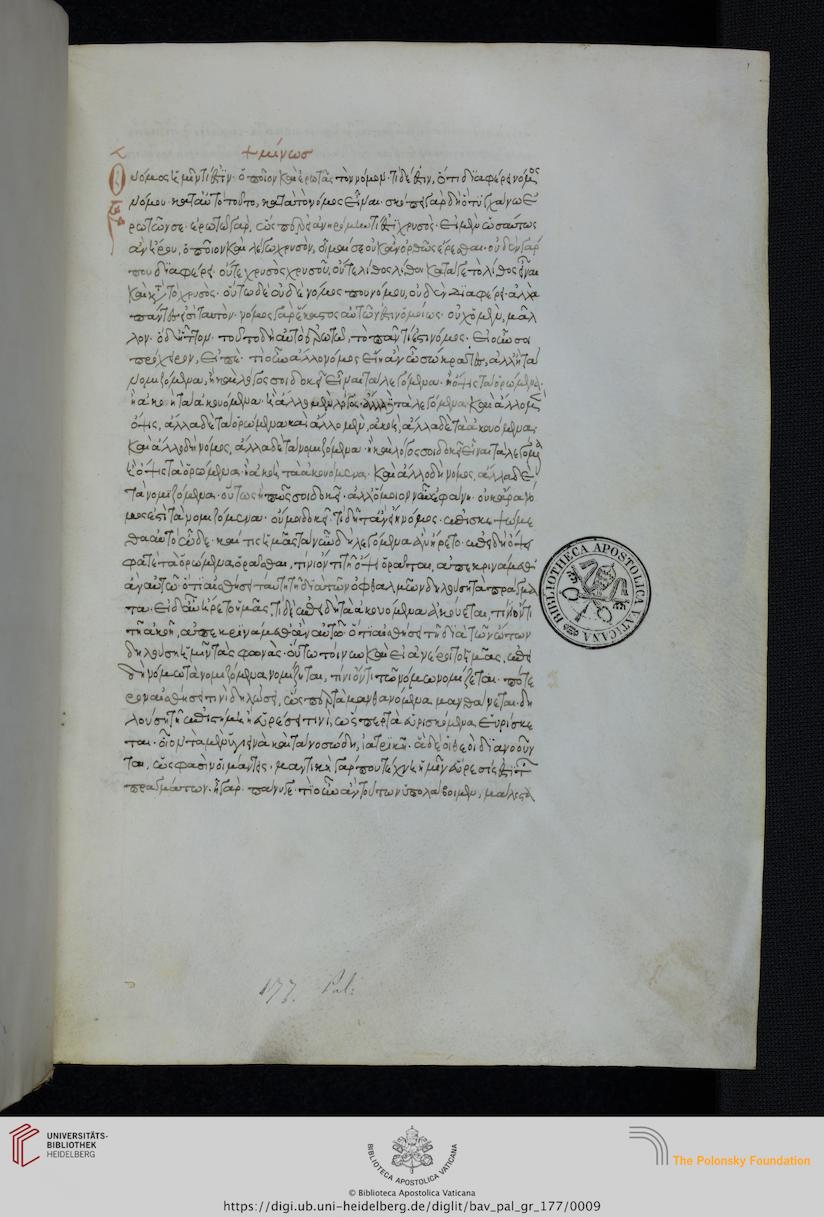 + μίνωσ
Ὁ νόμος ἡμῖν τί ἐστιν· ὁποῖον καὶ ἐρωτᾶς τὸν νόμον· τί δέ ἐστιν, ὅτι διαφέρει νόμος
νόμου· κατ' αὐτὸ τοῦτο, κατὰ τὸ νόμος εἶναι· σκόπει γὰρ δὴ ὃ τυγχάνω ἐ
ρωτῶν σε· ἐρωτῶ γὰρ, ὥσπερ εἰ ἀνηρόμην τί ἐστι χρυσός· εἴ με ὡσαύτως
ἀνήρου, ὁποῖον καὶ λέγω χρυσὸν, οἶμαί σε οὐκ ἂν ὀρθῶς ἐρέσθαι· οὐδὲν γάρ
που διαφέρει· οὔτε χρυσὸς χρυσοῦ, οὔτε λίθος λίθου κατά γε τὸ λίθος εἶναι
καὶ κατὰ τὸ χρυσός· οὕτω δὲ οὐδὲ νόμος που νόμου, οὐδὲν διαφέρει· ἀλλὰ
πάντες εἰσὶ ταυτόν· νόμος γὰρ ἕκαστος αὐτῶν ἐστὶν ὁμοίως· οὐχ ὁ μὲν, μᾶλ
λον· ὁ δ' ἧττον· τοῦτο δὴ αὐτὸ ἐρωτῶ, τὸ πᾶν τί ἐστι νόμος· εἰ οὖν σοι
πρόχειρον, εἰπέ· τί οὖν ἄλλο νόμος εἴη ἂν ὦ σώκρατες, ἀλλ' ἢ τὰ
νομιζόμενα, ἦ καὶ λόγος σοι δοκεῖ εἶναι τὰ λεγόμενα· ἢ ὄψις τὰ ὁρώμενα·
ἢ ἀκοὴ τὰ ἀκουόμενα· ἢ ἄλλο μὲν λόγος· ἄλλο τὰ λεγόμενα· καὶ ἄλλο μὲν
ὄψις, ἄλλα δὲ τὰ ὁρώμενα καὶ ἄλλο μὲν, ἀκοὴ, ἄλλα δὲ τὰ ἀκουόμενα·
καὶ ἄλλο δὴ νόμος, ἄλλα δὲ τὰ νομιζόμενα· ἦ καὶ λόγος σοι δοκεῖ εἶναι τὰ λεγόμενα
ἢ ὄψις τὰ ὁρώμενα· ἢ ἀκοὴ τὰ ἀκουόμενα· καὶ ἄλλο δὴ νόμος, ἄλλα δὲ
τὰ νομιζόμενα· οὕτως ἢ πῶς σοι δοκεῖ· ἄλλό μοι νῦν ἐφάνη· οὐκ ἄρα νό
μος ἐστὶ τὰ νομιζόμενα· οὔ μοι δοκεῖ· τί δῆτ' ἂν εἴη νόμος· ἐπισκεψώμε
θα αὐτὸ ὧδε· εἴ τις ἡμᾶς τὰ νῦν δὴ λεγόμενα ἀνήρετο· ἐπειδὴ ὄψει
φατὲ τὰ ὁρώμενα, ὁρᾶσθαι, τίνι ὄντι τῆ ὄψει ὁρᾶται, ἀπεκρινάμεθ'
ἂν αὐτῶ· ὅτι αἰσθήσει ταύτη τῆ διὰ τῶν ὀφθαλμῶν δηλούση τὰ πράγμα
τα· εἰ δ' αὖ ἤρετο ἡμᾶς· τί δὲ ἐπειδὴ ἀκοῆ τὰ ἀκουόμενα ἀκούεται, τίνι ὄντι
τῆ ἀκοῆ, ἀπεκρινάμεθ' ἂν αὐτῶ· ὅτι αἰσθήσει τῆ διὰ τῶν ὤτων
δηλούση ἡμῖν τὰς φωνάς· οὕτω τοίνυν καὶ εἰ ἀνέροιτο ἡμᾶς, ἐπει
δὴ νόμω τὰ νομιζόμενα νομίζεται, τίνι ὄντι τῶ νόμω νομίζεται· πότε
ρον αἰσθήσει τινὶ ἢ δηλώσει, ὥσπερ τὰ μανθανόμενα μανθάνεται· δη
λούση τῆ ἐπιστήμη· ἢ εὑρέσει τινὶ, ὥσπερ τὰ εὑρισκόμενα εὑρίσκε
ται· οἷον τὰ μὲν ὑγιεινὰ καὶ τὰ νοσώδη, ἰατρικῆ· ἃ δὲ οἱ θεοὶ διανοοῦν
ται, ὥς φασιν οἱ μάντεις, μαντικῆ· ἡ γάρ που τέχνη ἡμῖν εὕρεσίς ἐστι τῶν
πραγμάτων· ἦ γάρ· πάνυ γε· τί οὖν ἂν τούτων ὑπολάβοιμεν, μάλιστα
177. Pal:
BIBLIOTHECA APOSTOLICA VATICANA
UNIVERSITÄTS-
BIBLIOTHEK
HEIDELBERG
BIBLIOTECA APOSTOLICA VATICANA
The Polonsky Foundation
© Biblioteca Apostolica Vaticana
https://digi.ub.uni-heidelberg.de/diglit/bav_pal_gr_177/0009